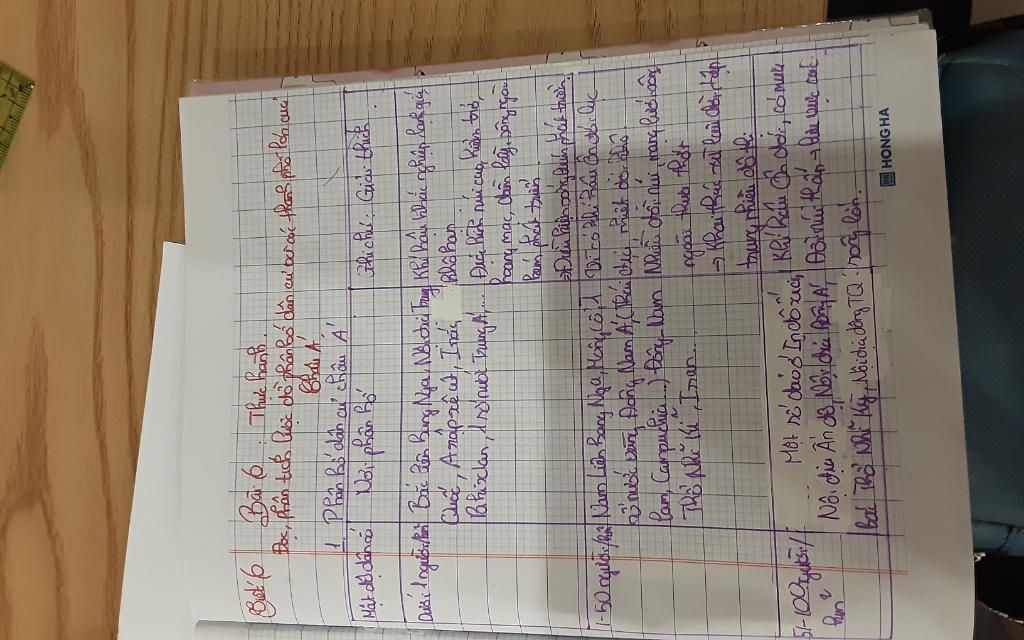 Tiết 6 Bài 6 : Thực hành.
Đọc, phân tích lược đồ phân bố dân cư và các thành phố lớn của
Châu Á
1. Phân bố dân cư châu Á
Mật độ dân số
Nơi phân bố
Ghi chú: Giải thích.
Dưới 1 người/km²
Bắc liên bang Nga, Nội địa Trung
Quốc, A-rập-xê-út, I rắc
Pa-kix-tan, 1 số nước Trung Á,...
Khí hậu khắc nghiệt, lạnh giá,
khô hạn
Địa hình núi cao, hiểm trở,
hoang mạc, đầm lầy, sông ngòi
kém phát triển.
→ Điều kiện sống kém phát triển.
1-50 người/km²
Nam Liên Bang Nga, Mông Cổ, 1
số nước vùng Đông Nam Á, (Thái
Lan, Campuchia...) Đông Nam
Thổ Nhĩ Kì, Iran...
Vì có khí hậu ôn đới lục
địa, nhiệt đới khô
Nhiều đồi núi mạng lưới sông
ngòi thưa thớt
→ Khai thác từ lâu đời, tập
trung nhiều đô thị
51-100 người/
km²
Một số đảo ở Inđônêxia,
Nội địa Ấn độ, Nội địa Đông Á,
bắc Thổ Nhĩ Kỳ, Nội địa đông TQ
Khí hậu ôn đới, có mưa
Đồi núi thấp → lưu vực các
sông lớn.
HONG HA